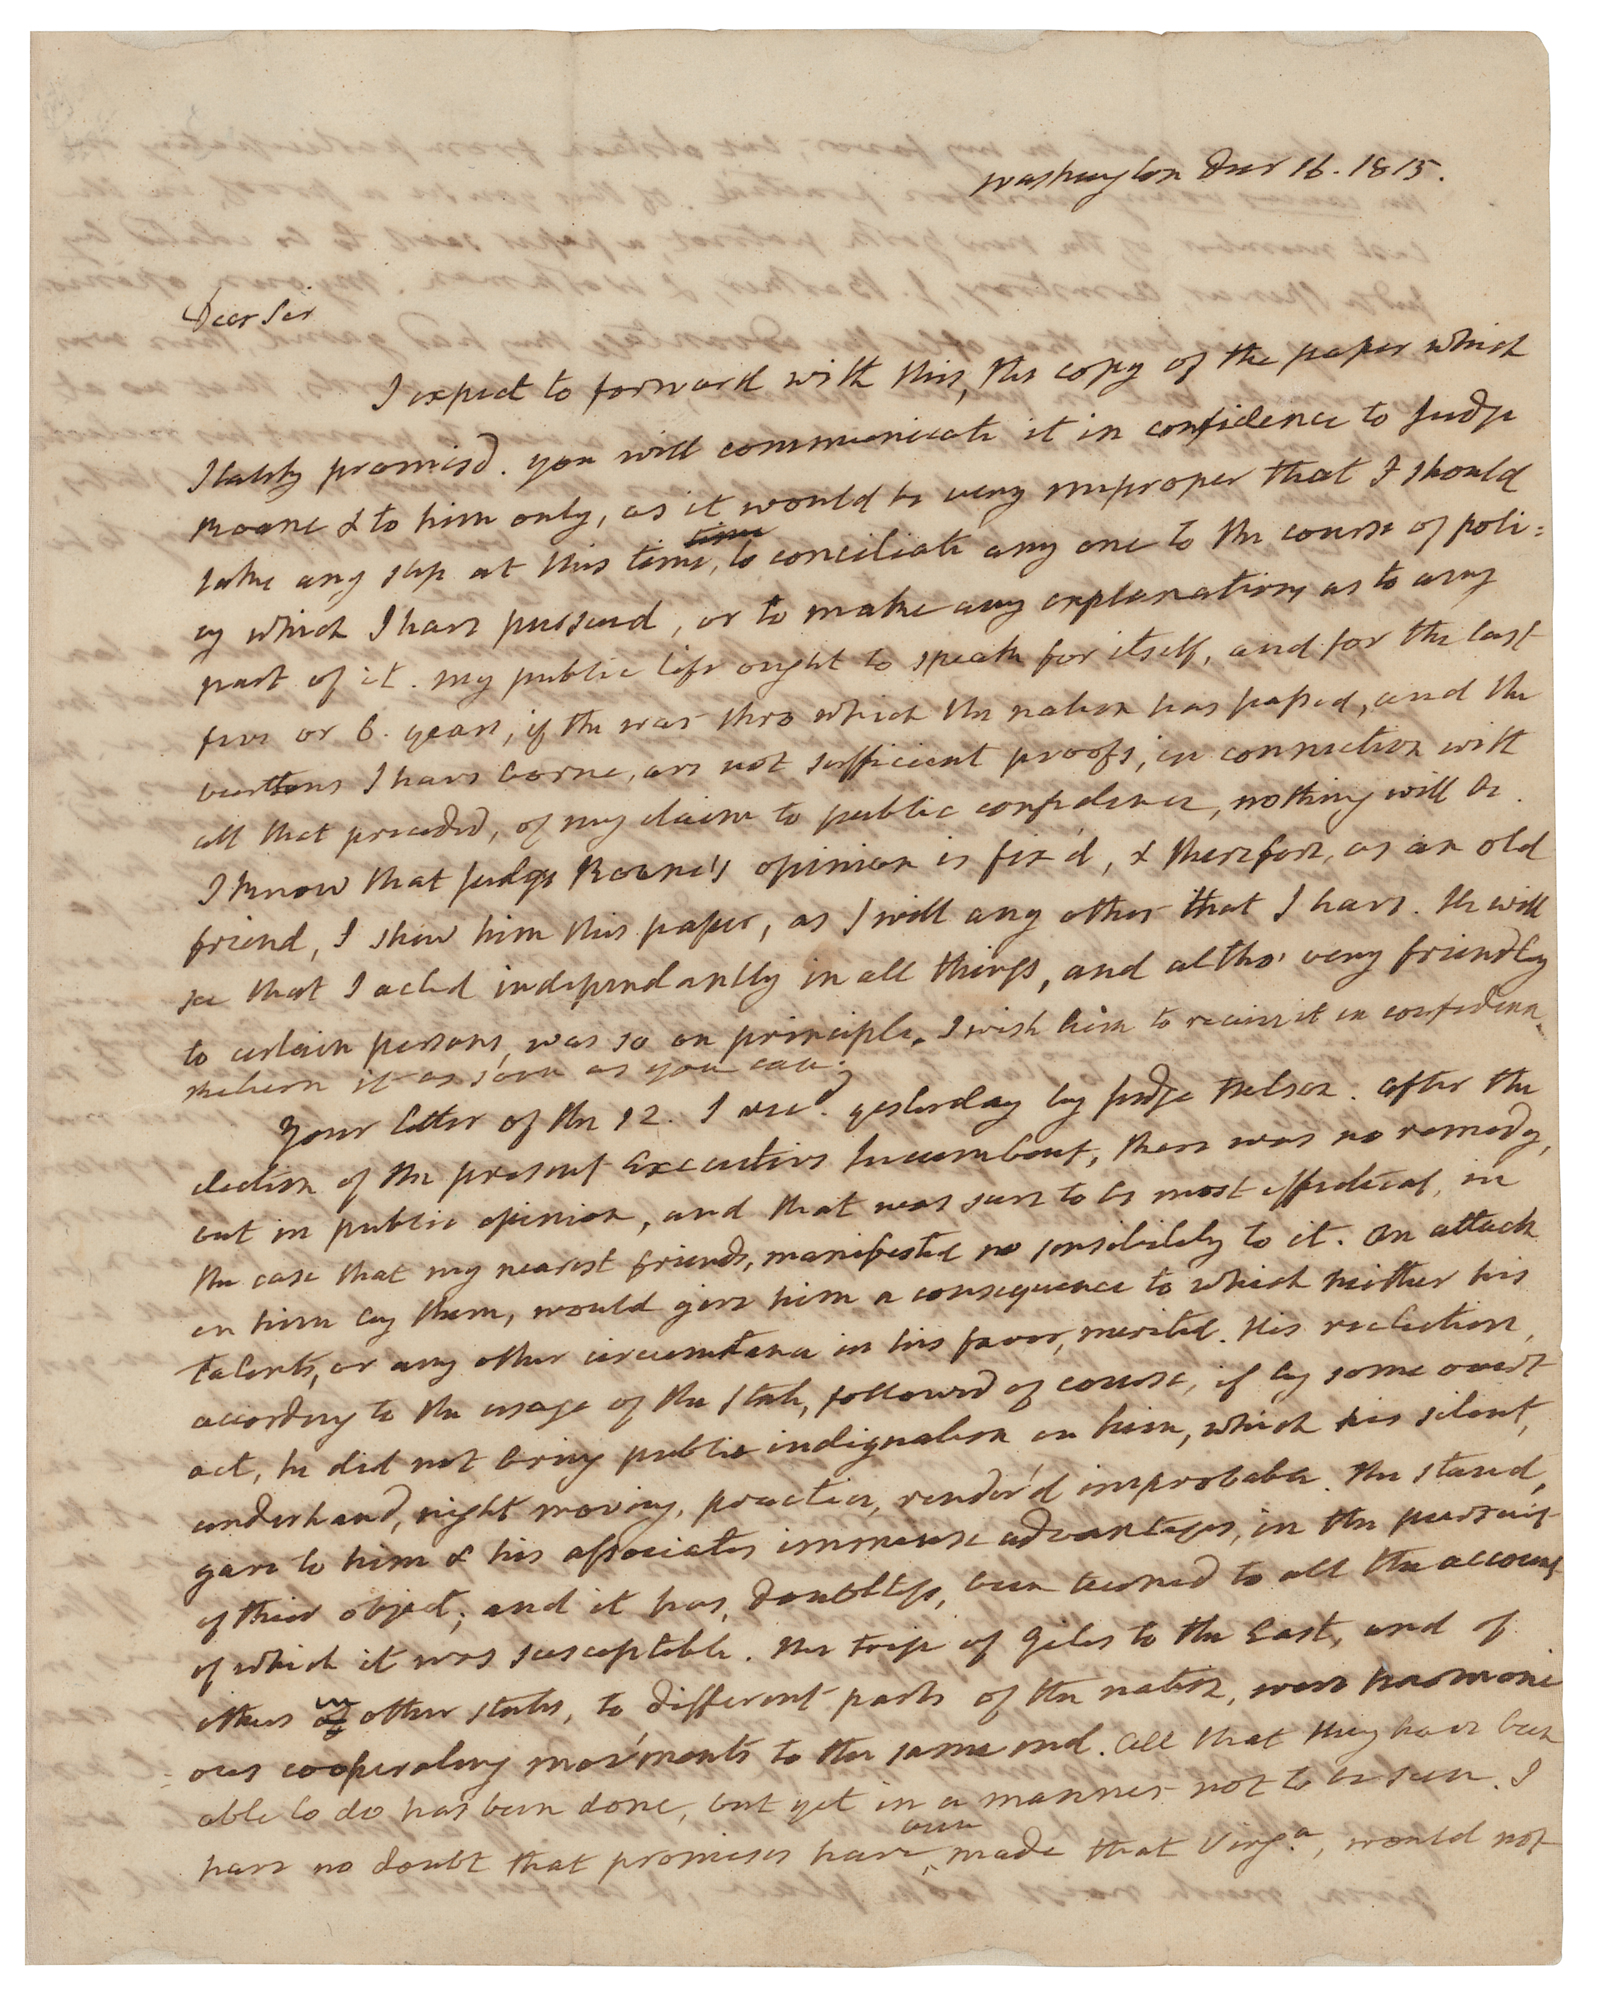 Washington Decr 16. 1815.
Dear Sir
I expect to forward with this, the copy of the paper which
I lately promis'd. you will communicate it in confidence to Judge
Roane & to him only, as it would be very improper that I should
take any step at this time, to conciliate any one to the course of poli=
cy which I have pursued, or to make any explanations as to any
part of it. my public life ought to speak for itself, and for the last
five or 6. years, if the war thro which the nation has passed, and the
burthens I have borne, are not sufficient proofs, in connection with
all that preceded, of my claim to public confidence, nothing will be.
I know that Judge Roane's opinion is fix'd, & therefore, as an old
friend, I shew him this paper, as I will any other that I have. He will
see that I acted independantly in all things, and altho' very friendly
to certain persons, was so on principle. I wish him to receive it in confidence.
Return it as soon as you can.
Your letter of the 12. I recd. yesterday by Judge Nelson. After the
election of the present Executive Incumbent, there was no remedy,
but in public opinion, and that was sure to be most effectual, in
the case that my nearest friends, manifested no sensibility to it. An attack
on him by them, would give him a consequence to which neither his
talents, or any other circumstance in his favor, merited. His reelection,
according to the usage of the State, followed of course, if by some overt
act, he did not bring public indignation on him, which his silent,
underhand, night moving, practice, render'd improbable. The stand,
gave to him & his associates immense advantages, in the pursuit
of their object; and it has, doubtless, been turned to all the account
of which it was susceptible. The trip of Giles to the East, and of
others in other states, to different parts of the nation, were harmoni
ous cooperating mov'ments to the same end. All that they have been
able to do has been done, but yet in a manner not to be seen. I
have no doubt that promises have been made that Virga, would not